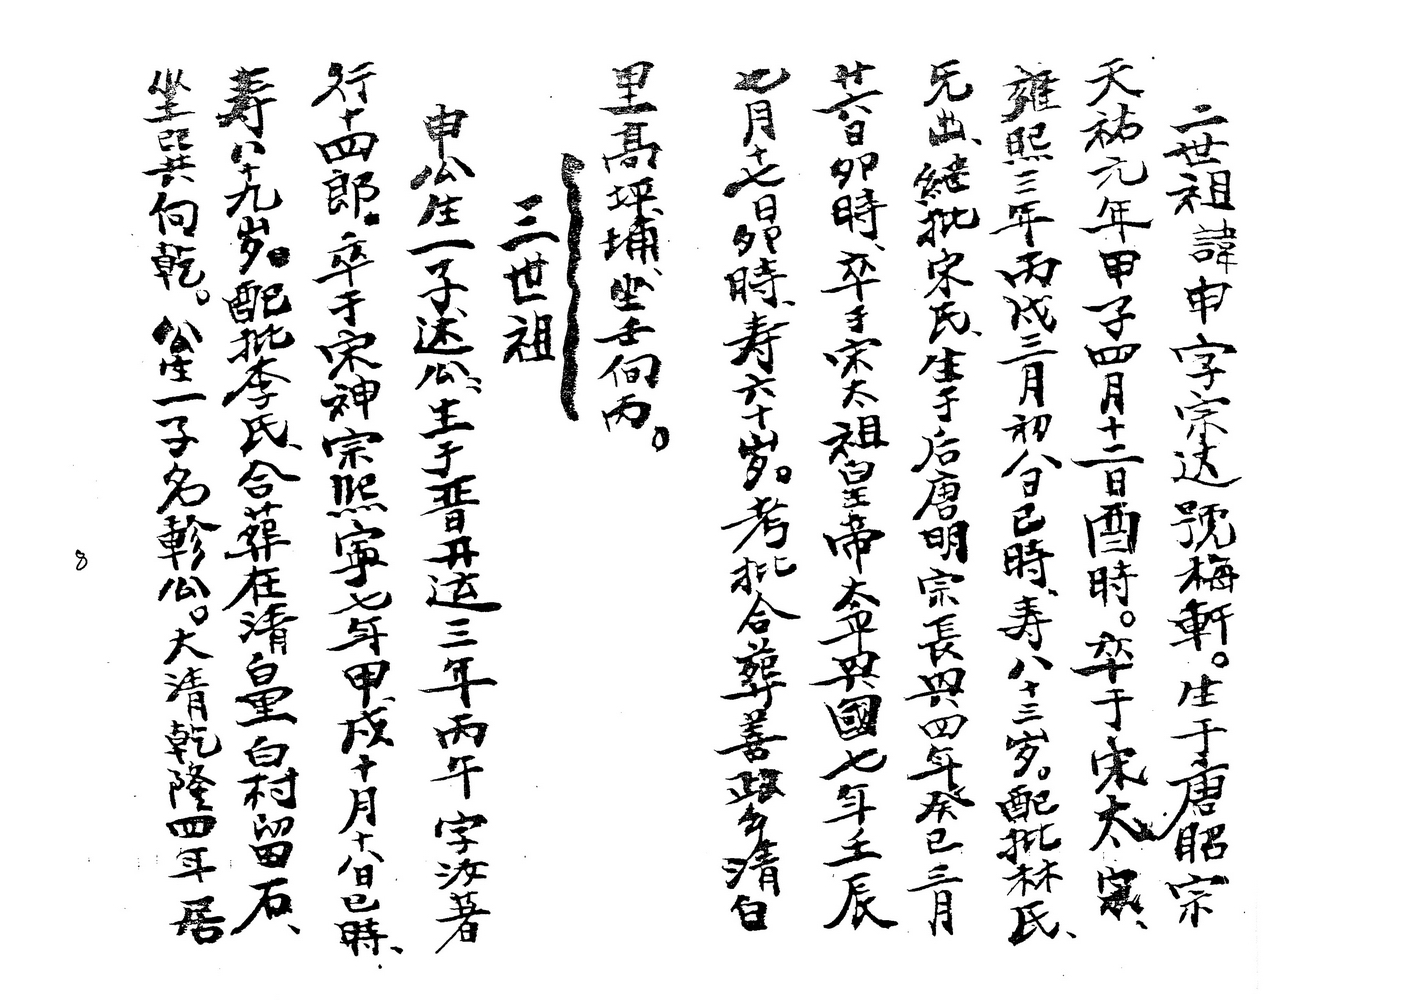 二世祖諱申字宗达號梅軒。生于唐昭宗
天祐元年甲子四月十二日酉時。卒于宋太宗、
雍熙三年丙戌三月初八日巳時、寿八十三岁。配妣林氏、
兄出、継妣宋氏、生于后唐明宗長興四年癸巳三月
廿六日卯時、卒于宋太祖皇帝太平興國七年壬辰
七月十七日卯時、寿六十岁。考妣合葬善政乡清白
里高坪埔、坐壬向丙。
三世祖
申公生一子、述公、生于晋开运三年丙午字汝著
行十四郎。卒于宋神宗熙寧七年甲戌十月十八日巳時、
寿八十九岁。配妣李氏、合葬在清白里白村留石、
坐巽向乾。公生一子名軫公。大清乾隆四年居
8